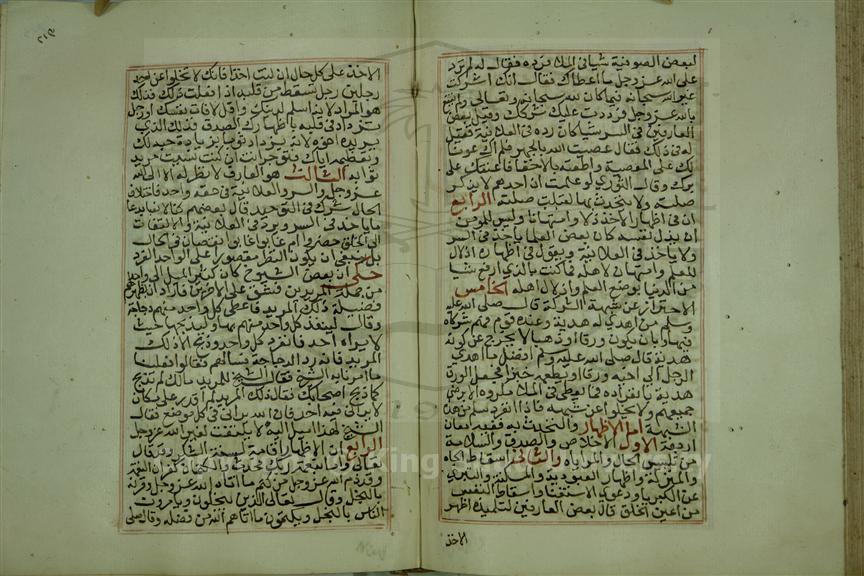 لبعض الصوفية شيئا في الملا فرده فقال له لم ترد
على الله عز وجل ما اعطاك فقال انك اشركت
غير الله سبحانه فيما كان لله سبحانه وتعالى ولم تقنع
بالله عز وجل فرددت عليك شركك وقبل بعض
العارفين في السر شيئا كان رده في العلانية فقيل
له في ذلك فقال عصيت الله بالجهر فلم اك عونا
لك على المعصية واطعته بالاخفا فاعنتك على
برك وقال الثوري لو علمت ان احدهم لا يذكر
صلته ولا يتحدث بها لقبلت صلته الرابع
ان في اظهار الاخذ ذلا وامتهانا وليس للمومن
ان يذل نفسه كان بعض العلما ياخذ في السر
ولا ياخذ في العلانية ويقول في اظهاره اذلال
للعلم وامتهان لاهله فما كنت بالذي ارفع شيا
من الدنيا بوضع العلم واذلال اهله الخامس
الاحتراز عن شبهة الشركة قال صلى الله عليه
وسلم من اهدي له هدية وعنده قوم فهم شركاه
فيها وبان يكون ورقا او ذهبا لا يخرج عن كونه
هدية قال صلى الله عليه وسلم افضل ما اهدى
الرجل الى اخيه ورقا او يطعمه خبزا فجعل الورق
هدية بانفراده فما يعطى في الملا مكروه الا برضى
جميعهم ولا يخلوا عن شبهة فاذا انفرد سلم من هذه
الشبهة اما الاظهار والتحدث به ففيه معان
اربعة الاول الاخلاص والصدق والسلامة
من تلبيس الحال والمراياه والثاني اسقاط الجاه
والمنزلة واظهار العبودية والمسكنة والتبري
عن الكبريا ودعوى الاستغنا واسقاط النفس
من اعين الخلق قال بعض العارفين لتلميذه اظهر
الاخذ
الاخذ على كل حال ان كنت اخذا فانك لا تخلوا عن احد
رجلين رجل تسقط من قلبه اذا فعلت ذلك فذلك
هو المراد لانه اسلم لدينك واقل لافات نفسك او رجل
تزداد في قلبه باظهارك الصدق فذلك الذي
يريده اخوه لانه يزداد ثوابا بزيادة حبه لك
وتعظيمه اياك فتوجر انت ان كنت سبب مزيد
ثوابه الثالث هو العارف لا نظر له الا الى الله
عز وجل والسر والعلانية في حقه واحد فاختلاف
الحال شرك في التوحيد قال بعضهم كنا لا نعبا بدعا
من ياخذ في السر ويرد في العلانية والالتفات
الى الخلق حضروا ام غابوا نقصان في الحال
بل ينبغي ان يكون النظر مقصورا على الواحد الفرد
حكي ان بعض الشيوخ كان كثير الميل الى واحد
من جملة المريدين فشق على الاخرين فاراد ان يظهر لهم
فضيلة ذلك المريد فاعطى كل واحد منهم دجاجة
وقال لينفرد كل واحد منهم بها وليذبحها بحيث
لا يراه احد فانفرد كل واحد وذبح الا ذلك
المريد فانه رد الدجاجة فسالهم فقالوا فعلنا
ما امرنا به الشيخ فقال الشيخ للمريد ما لك لم تذبح
كما ذبح اصحابك فقال ذلك المريد لم اقدر على مكان
لا يراني فيه احد فان الله يراني في كل موضع فقال
الشيخ لهذا اميل اليه لا يلتفت لغير الله عز وجل
الرابع ان الاظهار اقامة لسنة الشكر وقد قال
تعالى واما بنعمة ربك فحدث والكتمان كفران النعمة
وقد ذم الله عز وجل من كتم ما اتاه الله عز وجل وقرنه
بالبخل وقال تعالى الذين يبخلون ويامرون
الناس بالبخل ويكتمون ما اتاهم الله من فضله وقال صلى